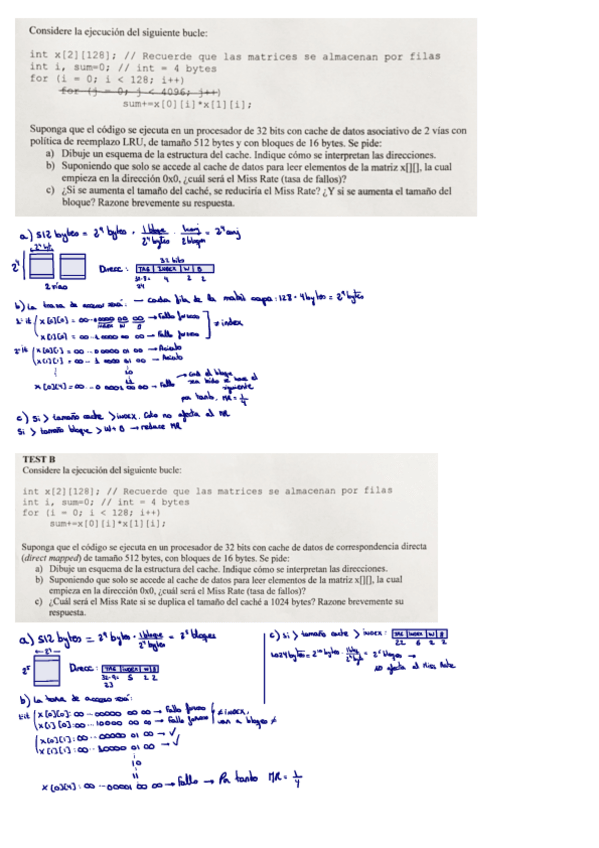 Considere la ejecución del siguiente bucle:
int x[2][128]; // Recuerde que las matrices se almacenan por filas
int i, sum=0; // int = 4 bytes
for (i = 0; i < 128; i++)
for (j = 0; j < 4096; j++)
sum+=x[0][i]*x[1][i];
Suponga que el código se ejecuta en un procesador de 32 bits con cache de datos asociativo de 2 vías con
política de reemplazo LRU, de tamaño 512 bytes y con bloques de 16 bytes. Se pide:
a) Dibuje un esquema de la estructura del cache. Indique cómo se interpretan las direcciones.
b) Suponiendo que solo se accede al cache de datos para leer elementos de la matriz x[][], la cual
empieza en la dirección 0x0, ¿cuál será el Miss Rate (tasa de fallos)?
c) ¿Si se aumenta el tamaño del caché, se reduciría el Miss Rate? ¿Y si se aumenta el tamaño del
bloque? Razone brevemente su respuesta.
a) 512 bytes = 2^9 bytes · 1 bloque / 2^4 bytes · 1 conj / 2 bloques = 2^4 conj
32 bits
Direcc: TAG | INDEX | W | B
2 vías
24 4 2 2
b) La traza de acceso será: — cada fila de la matriz ocupa: 128 · 4 bytes = 2^9 bytes
→ Fallo forzoso
→ Fallo forzoso
≠ index
→ Acierto
→ Acierto
→ Fallo
por tanto, MR = 1/4
c) Si > tamaño cache > index. Esto no afecta al MR
Si > tamaño bloque > W + B → reduce MR
TEST B
Considere la ejecución del siguiente bucle:
int x[2][128]; // Recuerde que las matrices se almacenan por filas
int i, sum=0; // int = 4 bytes
for (i = 0; i < 128; i++)
sum+=x[0][i]*x[1][i];
Suponga que el código se ejecuta en un procesador de 32 bits con cache de datos de correspondencia directa
(direct mapped) de tamaño 512 bytes, con bloques de 16 bytes. Se pide:
a) Dibuje un esquema de la estructura del cache. Indique cómo se interpretan las direcciones.
b) Suponiendo que solo se accede al cache de datos para leer elementos de la matriz x[][], la cual
empieza en la dirección 0x0, ¿cuál será el Miss Rate (tasa de fallos)?
c) ¿Cuál será el Miss Rate si se duplica el tamaño del caché a 1024 bytes? Razone brevemente su
respuesta.
a) 512 bytes = 2^9 bytes · 1 bloque / 2^4 bytes = 2^5 bloques
Direcc: TAG | INDEX | W | B
5 2 2
23
c) Si > tamaño cache > index: TAG | INDEX | W | B
22 6 2 2
no afecta al Miss Rate
b) La traza de acceso será:
→ Fallo forzoso
→ Fallo forzoso
≠ index,
van a bloques ≠
→ Fallo → Por tanto MR = 1/4